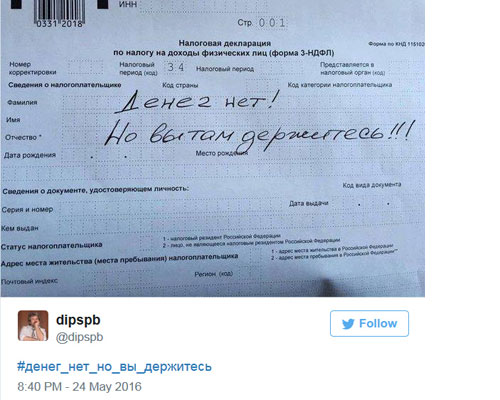 0331 2018
ИНН
Стр. 001
Налоговая декларация
по налогу на доходы физических лиц (форма 3-НДФЛ)
Форма по КНД 115102
Номер корректировки
Налоговый период (код) 34
Налоговый период
Представляется в налоговый орган (код)
Сведения о налогоплательщике
Код страны
Код категории налогоплательщика
Фамилия
Денег нет!
Имя
Но вы там держитесь!!!
Отчество *
Дата рождения
Место рождения
Сведения о документе, удостоверяющем личность:
Код вида документа
Серия и номер
Дата выдачи
Кем выдан
Статус налогоплательщика
1 - налоговый резидент Российской Федерации
2 - лицо, не являющееся налоговым резидентом Российской Федерации
Адрес места жительства (места пребывания) налогоплательщика
1 - адрес места жительства в Российской Федерации
2 - адрес места пребывания в Российской Федерации**
Почтовый индекс
Регион (код)
dipspb
@dipspb
Follow
#денег_нет_но_вы_держитесь
8:40 PM - 24 May 2016